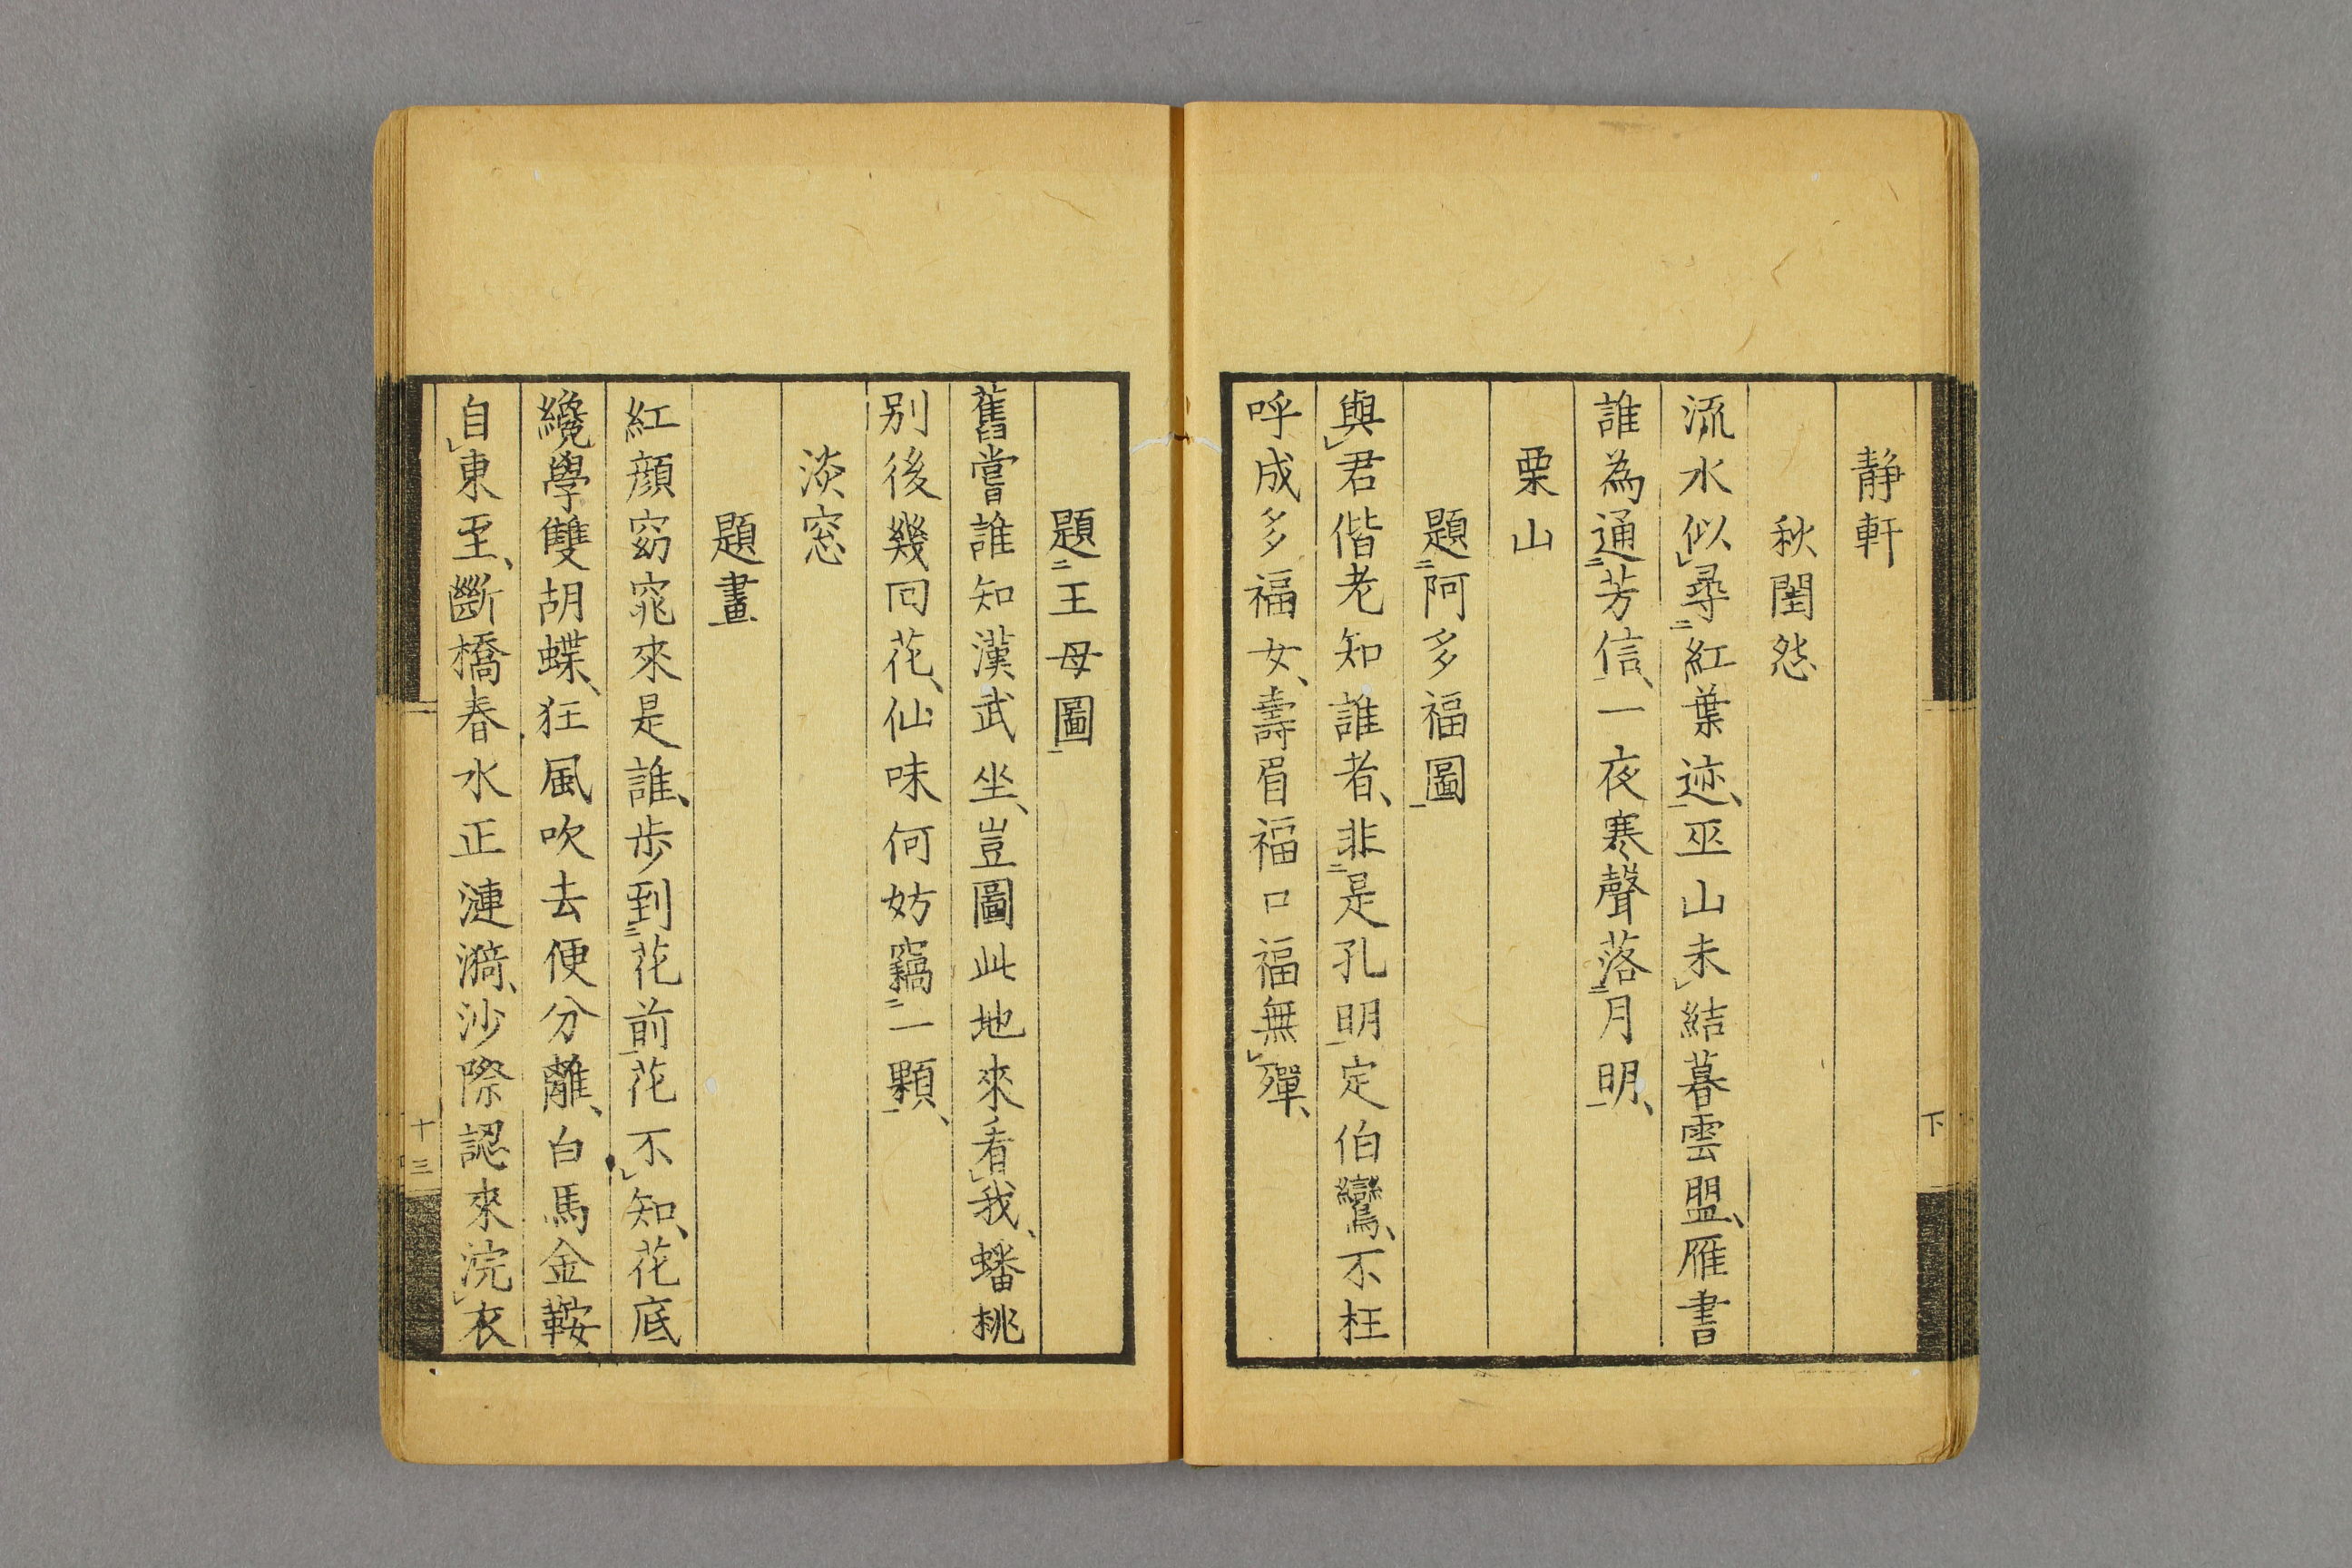 下
靜軒
秋閨怨
流水似尋紅葉迹、巫山未結暮雲盟、雁書
誰為通芳信、一夜寒聲落月明、
栗山
題阿多福圖
與君偕老知誰者、非是孔明定伯鸞、不枉
呼成多福女、壽眉福口福無殫、
題王母圖
舊嘗誰知漢武坐、豈圖此地來看我、蟠桃
別後幾回花、仙味何妨竊一顆、
淡窓
題畫
紅顔窈窕來是誰、步到花前花不知、花底
纔學雙胡蝶、狂風吹去便分離、白馬金鞍
自東至、斷橋春水正漣漪、沙際認來浣衣
十三